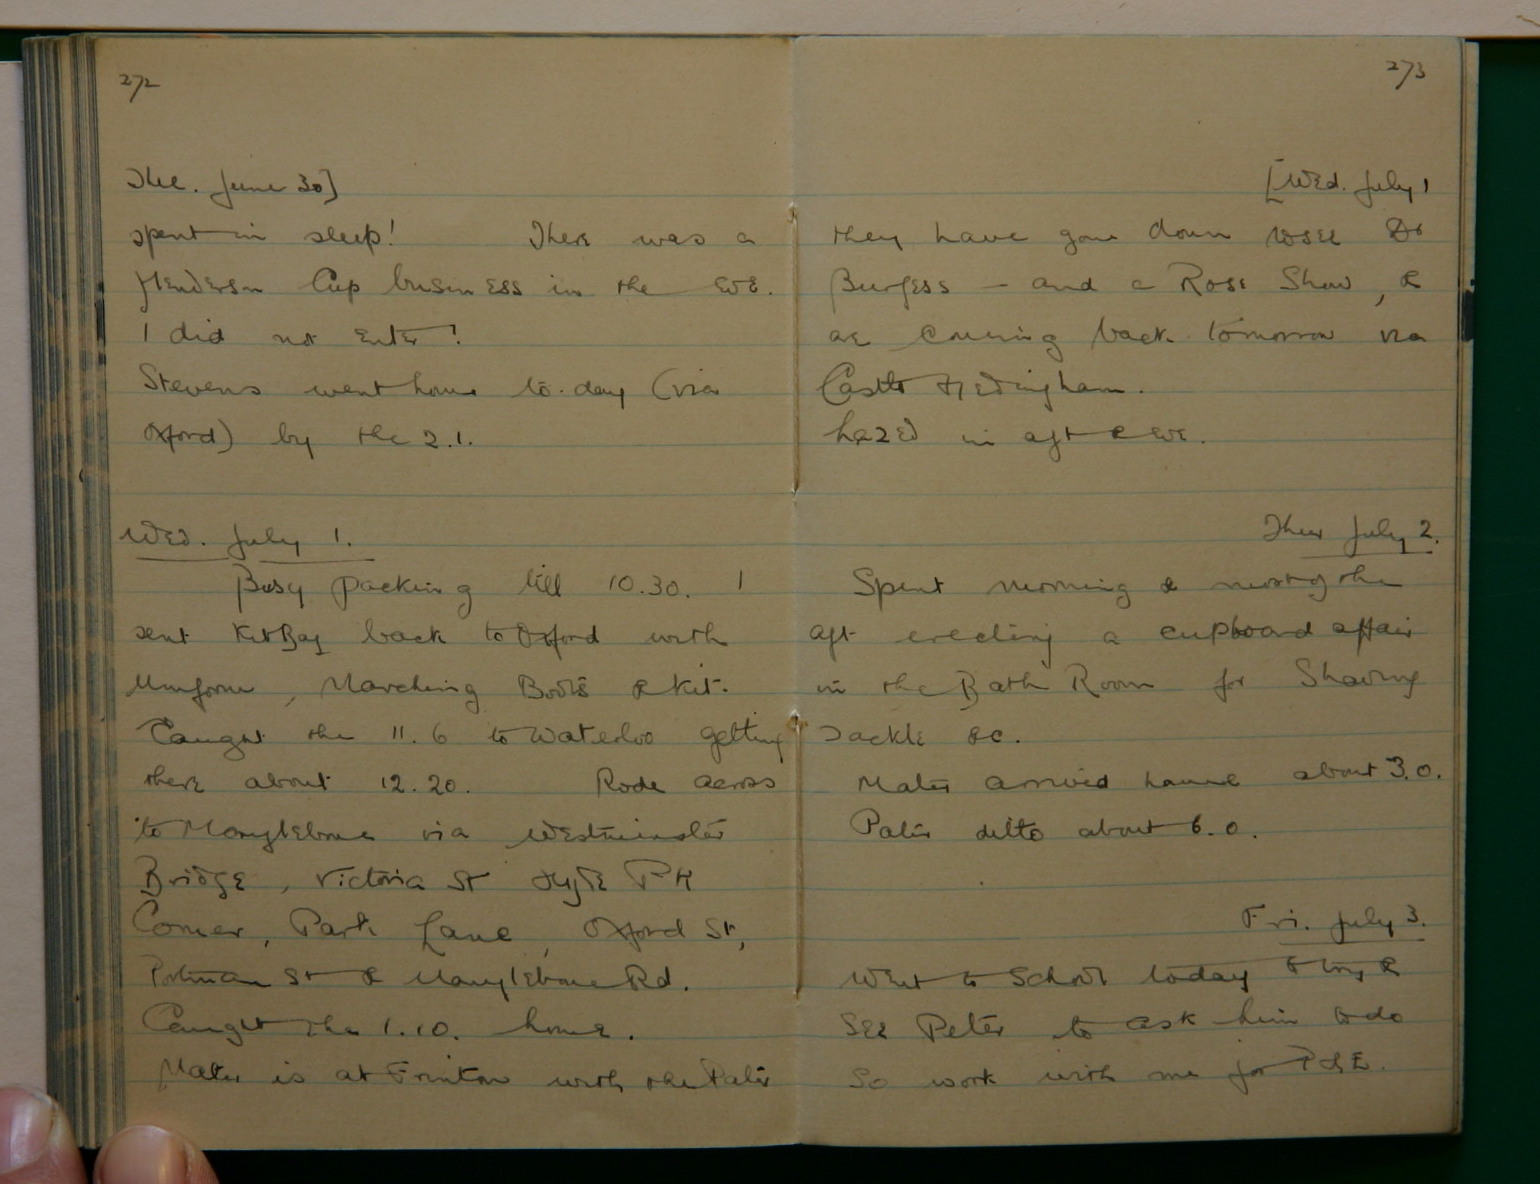 272
Tue. June 30]
spent in sleep! There was a
Henderson Cup business in the eve.
I did not enter!
Stevens went home to-day (via
Oxford) by the 2.1.
Wed. July 1.
Busy packing till 10.30. I
sent Kit Bag back to Oxford with
Uniform, Marching Boots & Kit.
Caught the 11.6 to Waterloo getting
there about 12.20. Rode across
to Marylebone via Westminster
Bridge, Victoria St Hyde Pk
Corner, Park Lane, Oxford St,
Portman St & Marylebone Rd.
Caught the 1.10. home.
Mater is at Frinton with the Pater
273
[Wed. July 1
they have gone down to see Dr
Burgess – and a Rose Show, &
are coming back tomorrow via
Castle Hedingham.
Lazed in aft & eve.
Thur July 2.
Spent morning & most of the
aft erecting a cupboard affair
in the Bath Room for Shaving
Tackle &c.
Mater arrived home about 3.0.
Pater ditto about 6.0.
Fri. July 3.
Went to School today to try &
see Peter to ask him to do
so work with me for